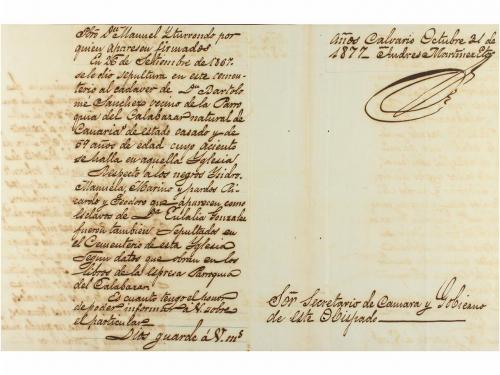 Pbro Dn Manuel Yturrondo por
quien aparesen firmados
En 26 de Setiembre de 1867.
se le dio sepultura en este cemen-
terio al cadaver de Dn Bartolo
me Sanchez vecino de la Parro
quia del Calabazar natural de
Canarias de estado casado y de
64 años de edad cuyo aciento
se halla en aquella Yglesia
Respecto á los negros Ysidro,
Manuela, Marino y pardos Ri-
cardo y Teodoro que aparecen como
esclavos de Da Eulalia Gonzalez
fueron tambien Sepultados en
el Cementerio de esta Yglesia
Segun datos que obran en los
libros de la espresa Parroquia
del Calabazar.
Es cuanto tengo el honor
de poder informar á V. sobre
el particular
Dios guarde á V. ms
años Calvario Octubre 21 de
1877 Andres Martinez
Sor Secretario de Camara y Gobierno
de este Obispado